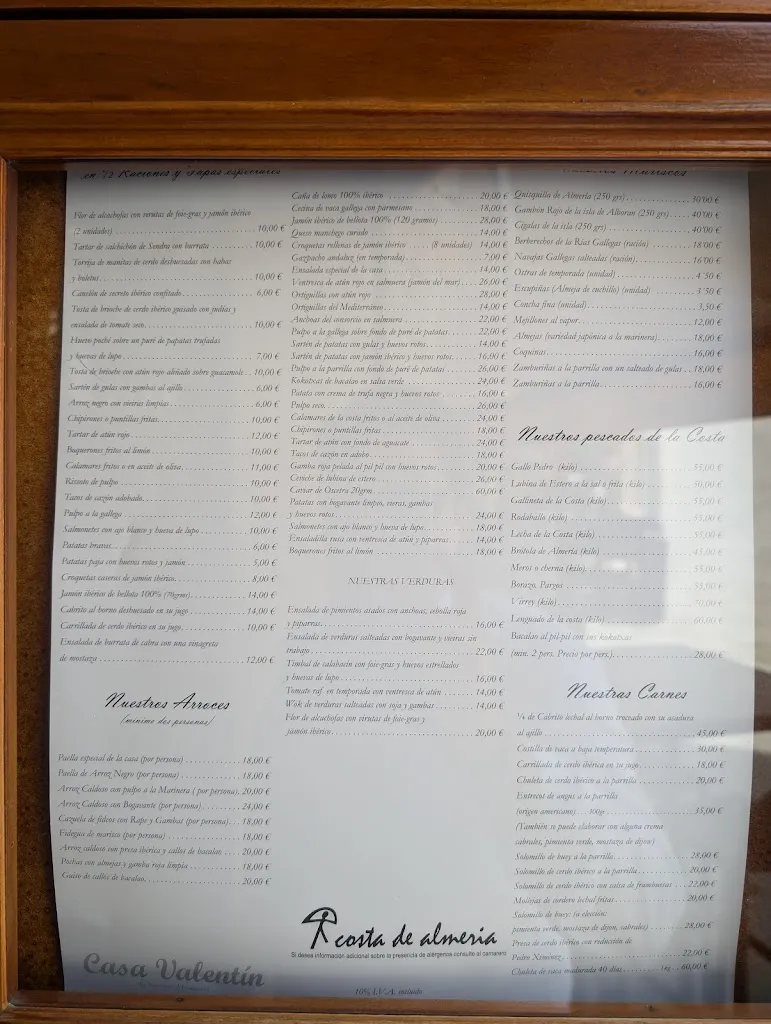 en 1/2 Raciones y Tapas especiales
Flor de alcachofas con virutas de foie-gras y jamón ibérico
(2 unidades) 10,00 €
Tartar de salchichón de Sendra con burrata 10,00 €
Torrija de manitas de cerdo deshuesadas con habas
y boletus 10,00 €
Canelón de secreto ibérico confitado 6,00 €
Tosta de brioche de cerdo ibérico guisado con judías y
ensalada de tomate seco 10,00 €
Huevo poché sobre un puré de papatas trufadas
y huevas de lupo 7,00 €
Tosta de brioche con atún rojo aliñado sobre guacamole 10,00 €
Sartén de gulas con gambas al ajillo 6,00 €
Arroz negro con vieiras limpias 6,00 €
Chipirones o puntillas fritas 10,00 €
Tartar de atún rojo 12,00 €
Boquerones fritos al limón 10,00 €
Calamares fritos o en aceite de oliva 11,00 €
Rizoto de pulpo 10,00 €
Tacos de cazón adobado 10,00 €
Pulpo a la gallega 12,00 €
Salmonetes con ajo blanco y hueva de lupo 10,00 €
Patatas bravas 6,00 €
Patatas papa con huevos rotos y jamón 5,00 €
Croquetas caseras de jamón ibérico 8,00 €
Jamón ibérico de bellota 100% (70grms) 14,00 €
Cabrito al horno deshuesado en su jugo 14,00 €
Carrillada de cerdo ibérico en su jugo 10,00 €
Ensalada de burrata de cabra con una vinagreta
de mostaza 12,00 €
Nuestros Arroces
(mínimo dos personas)
Paella especial de la casa (por persona) 18,00 €
Paella de Arroz Negro (por persona) 18,00 €
Arroz Caldoso con pulpo a la Marinera ( por persona) 20,00 €
Arroz Caldoso con Bogavante (por persona) 24,00 €
Cazuela de fideos con Rape y Gambas (por persona) 18,00 €
Fideguá de marisco (por persona) 18,00 €
Arroz caldoso con presa ibérica y callos de bacalao 20,00 €
Pochas con almejas y gamba roja limpia 18,00 €
Guiso de callos de bacalao 20,00 €
Casa Valentín
Caña de lomo 100% ibérico 20,00 €
Cecina de vaca gallega con parmesano 18,00 €
Jamón ibérico de bellota 100% (120 gramos) 28,00 €
Queso manchego curado 14,00 €
Croquetas rellenas de jamón ibérico (8 unidades) 14,00 €
Gazpacho andaluz (en temporada) 7,00 €
Ensalada especial de la casa 14,00 €
Ventresca de atún rojo en salmuera (jamón del mar) 26,00 €
Ortiguillas con atún rojo 28,00 €
Ortiguillas del Mediterráneo 14,00 €
Anchoas del consorcio en salmuera 22,00 €
Pulpo a la gallega sobre fondo de puré de patatas 22,00 €
Sartén de patatas con gulas y huevos rotos 14,00 €
Sartén de patatas con jamón ibérico y huevos rotos 16,00 €
Pulpo a la parrilla con fondo de puré de patatas 26,00 €
Kokotxas de bacalao en salsa verde 24,00 €
Patata con crema de trufa negra y huevos rotos 16,00 €
Pulpo seco 26,00 €
Calamares de la costa fritos o al aceite de oliva 24,00 €
Chipirones o puntillas fritas 18,00 €
Tartar de atún con fondo de aguacate 24,00 €
Tacos de cazón en adobo 18,00 €
Gamba roja pelada al pil pil con huevos rotos 20,00 €
Ceviche de lubina de estero 26,00 €
Caviar de Osetra 20grm 60,00 €
Patatas con bogavante limpio, vieras, gambas
y huevos rotos 24,00 €
Salmonetes con ajo blanco y hueva de lupo 18,00 €
Ensaladilla rusa con ventresca de atún y piparras 14,00 €
Boquerones fritos al limón 18,00 €
NUESTRAS VERDURAS
Ensalada de pimientos asados con anchoas, cebolla roja
y piparras 16,00 €
Ensalada de verduras salteadas con bogavante y vieiras sin
trabajo 22,00 €
Timbal de calabacín con foie-gras y huevos estrellados
y huevas de lupo 16,00 €
Tomate raf en temporada con ventresca de atún 14,00 €
Wok de verduras salteadas con soja y gambas 14,00 €
Flor de alcachofas con virutas de foie-gras y
jamón ibérico 20,00 €
costa de almería
Si desea información adicional sobre la presencia de alérgenos consulte al camarero
10% I.V.A. incluido
Mariscos
Quisquilla de Almería (250 grs) 30'00 €
Gambón Rojo de la isla de Alboran (250 grs) 40'00 €
Cigalas de la isla (250 grs) 40'00 €
Berberechos de la Rias Gallegas (ración) 18'00 €
Navajas Gallegas salteadas (ración) 16'00 €
Ostras de temporada (unidad) 4'50 €
Escupiñas (Almeja de cuchillo) (unidad) 3'50 €
Concha fina (unidad) 3,50 €
Mejillones al vapor 12,00 €
Almejas (variedad japónica a la marinera) 18,00 €
Coquinas 16,00 €
Zamburiñas a la parrilla con un salteado de gulas 18,00 €
Zamburiñas a la parrilla 16,00 €
Nuestros pescados de la Costa
Gallo Pedro (kilo) 55,00 €
Lubina de Estero a la sal o frita (kilo) 50,00 €
Gallineta de la Costa (kilo) 55,00 €
Rodaballo (kilo) 55,00 €
Lecha de la Costa (kilo) 55,00 €
Brótola de Almería (kilo) 45,00 €
Mero o cherna (kilo) 55,00 €
Borazo, Pargos 55,00 €
Virrey (kilo) 70,00 €
Lenguado de la costa (kilo) 60,00 €
Bacalao al pil-pil con sus kokotxas
(min. 2 pers. Precio por pers.) 28,00 €
Nuestras Carnes
¼ de Cabrito lechal al horno troceado con su asadura
al ajillo 45,00 €
Costilla de vaca a baja temperatura 30,00 €
Carrillada de cerdo ibérica en su jugo 18,00 €
Chuleta de cerdo ibérico a la parrilla 20,00 €
Entrecot de angus a la parrilla
(origen americano) 300gr 35,00 €
(También se puede elaborar con alguna crema
cabrales, pimienta verde, mostaza de dijon)
Solomillo de buey a la parrilla 28,00 €
Solomillo de cerdo ibérico a la parrilla 20,00 €
Solomillo de cerdo ibérico con salsa de frambuesas 22,00 €
Mollejas de cordero lechal fritas 20,00 €
Solomillo de buey: tu elección:
pimienta verde, mostaza de dijon, cabrales) 28,00 €
Presa de cerdo ibérico con reducción de
Pedro Ximénez 22,00 €
Chuleta de vaca madurada 40 días 1kg 60,00 €